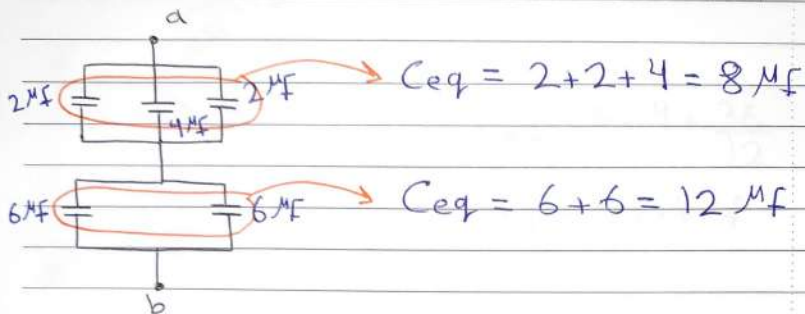 a
2 μf
4 μf
2 μf
Ceq = 2+2+4 = 8 μf
6 μf
6 μf
Ceq = 6+6 = 12 μf
b